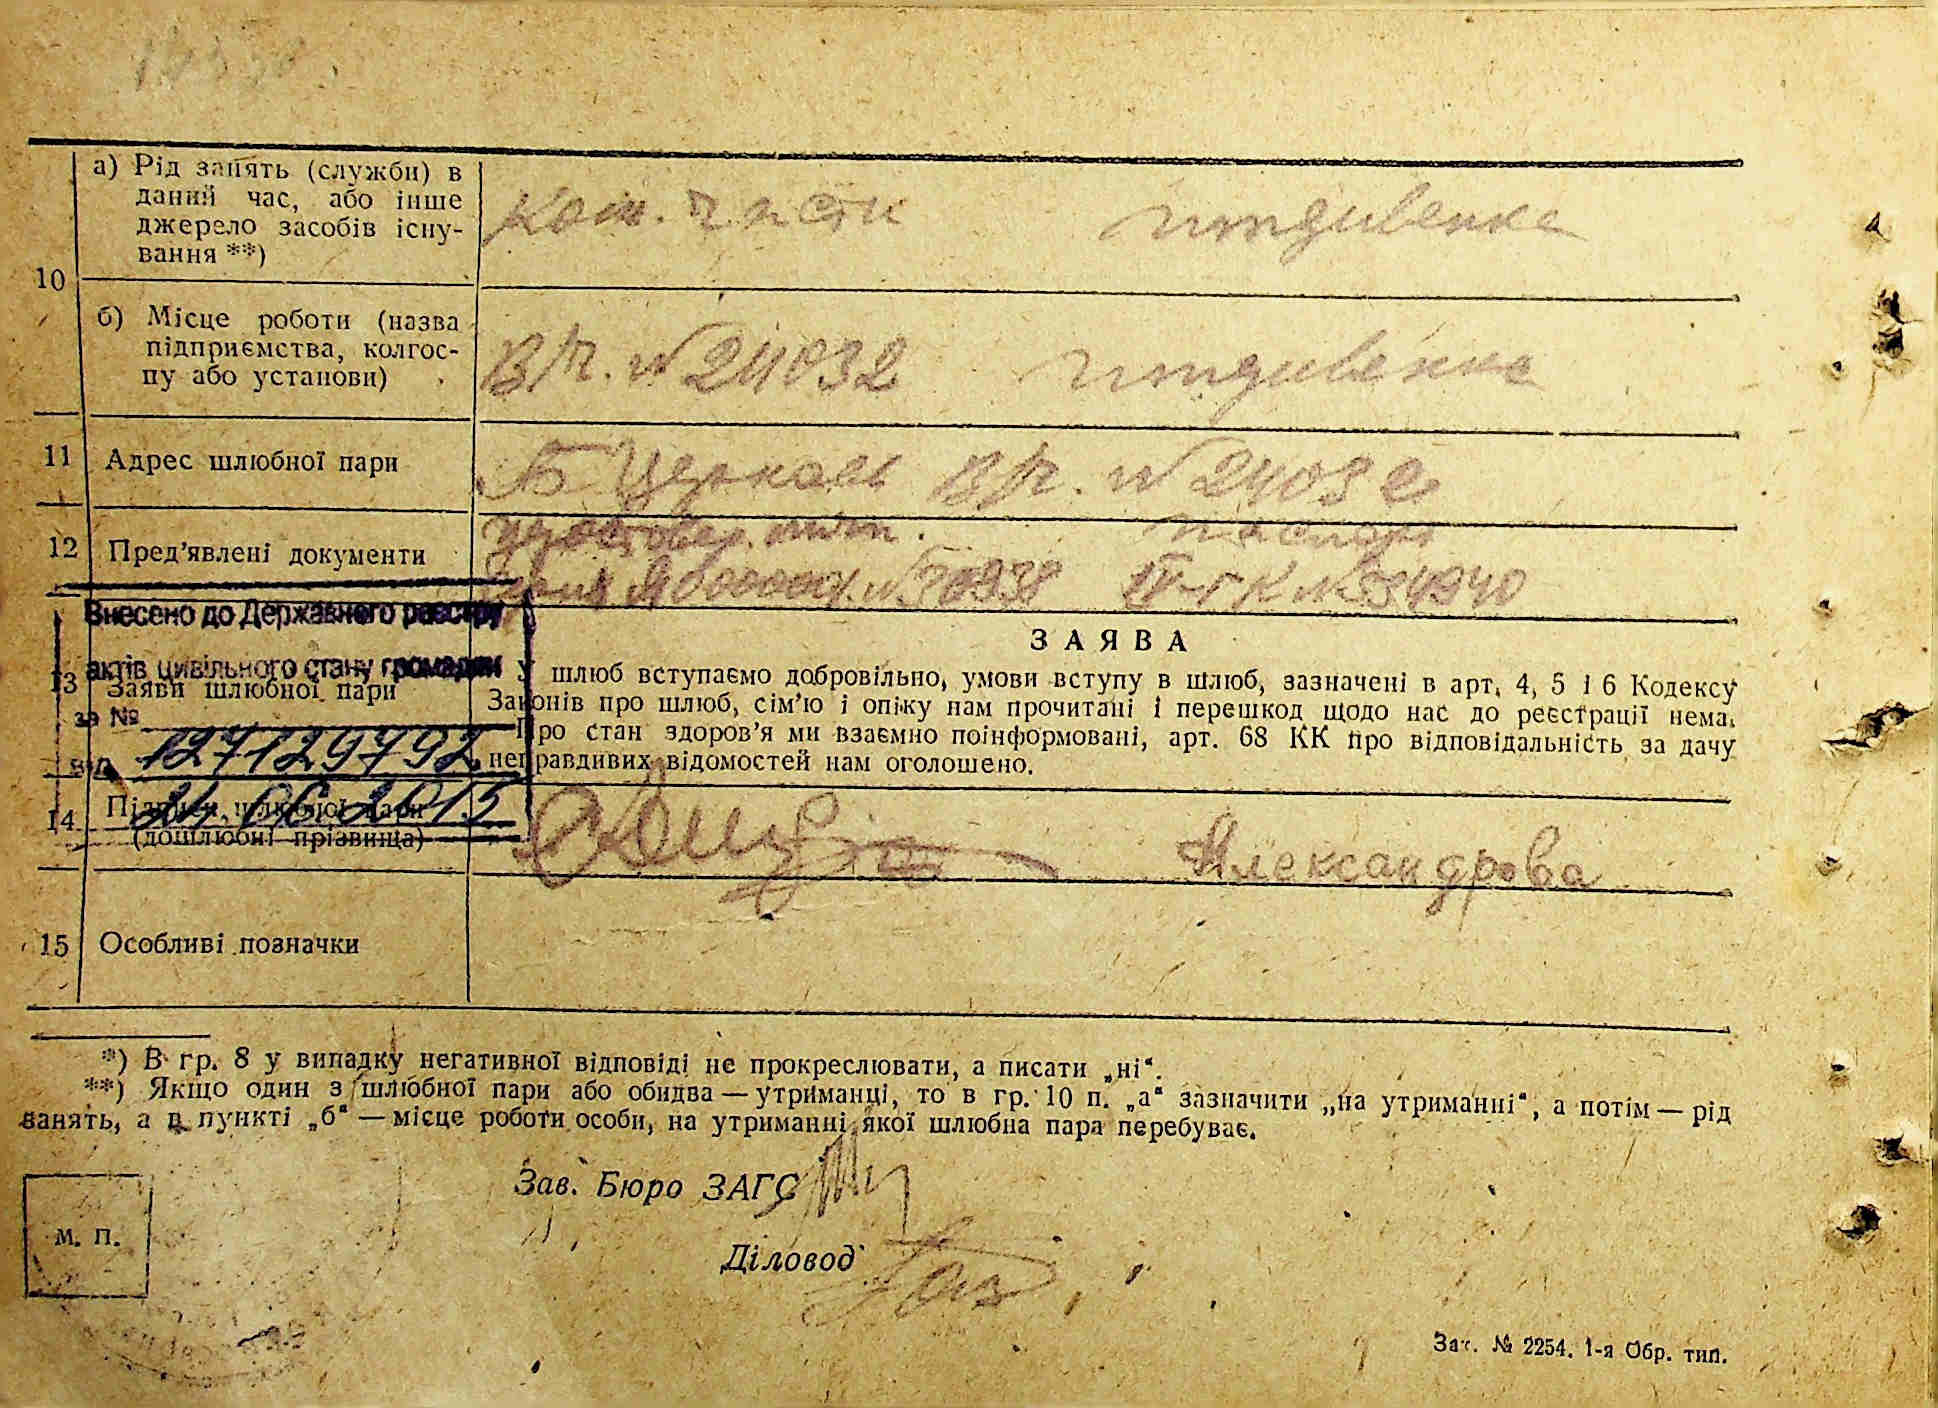 а) Рід занять (служби) в
даний час, або інше
джерело засобів існу-
вання **)
Ком. части утдивенка
10
б) Місце роботи (назва
підприємства, колгос-
пу або установи)
В/ч. № 24032 утдивенка
11 Адрес шлюбної пари
Б Церковь В/ч. № 24032
12 Пред’явлені документи
паспорт
№ 70938 IV-ГК № 534940
Внесено до Державного реєстру
актів цивільного стану громадян
за № 127129792
від 24 06 2015
13 Заяви шлюбної пари
ЗАЯВА
У шлюб вступаємо добровільно, умови вступу в шлюб, зазначені в арт. 4, 5 і 6 Кодексу
Законів про шлюб, сім’ю і опіку нам прочитані і перешкод щодо нас до реєстрації нема.
Про стан здоров’я ми взаємно поінформовані, арт. 68 КК про відповідальність за дачу
неправдивих відомостей нам оголошено.
14 Підписи шлюбної пари
(дошлюбні прізвища)
Александрова
15 Особливі позначки
*) В гр. 8 у випадку негативної відповіді не прокреслювати, а писати „ні“.
**) Якщо один з шлюбної пари або обидва — утриманці, то в гр. 10 п. „а“ зазначити „на утриманні“, а потім — рід
занять, а в пункті „б“ — місце роботи особи, на утриманні якої шлюбна пара перебуває.
Зав. Бюро ЗАГС
М. П.
Діловод
Зак. № 2254. 1-я Обр. тип.